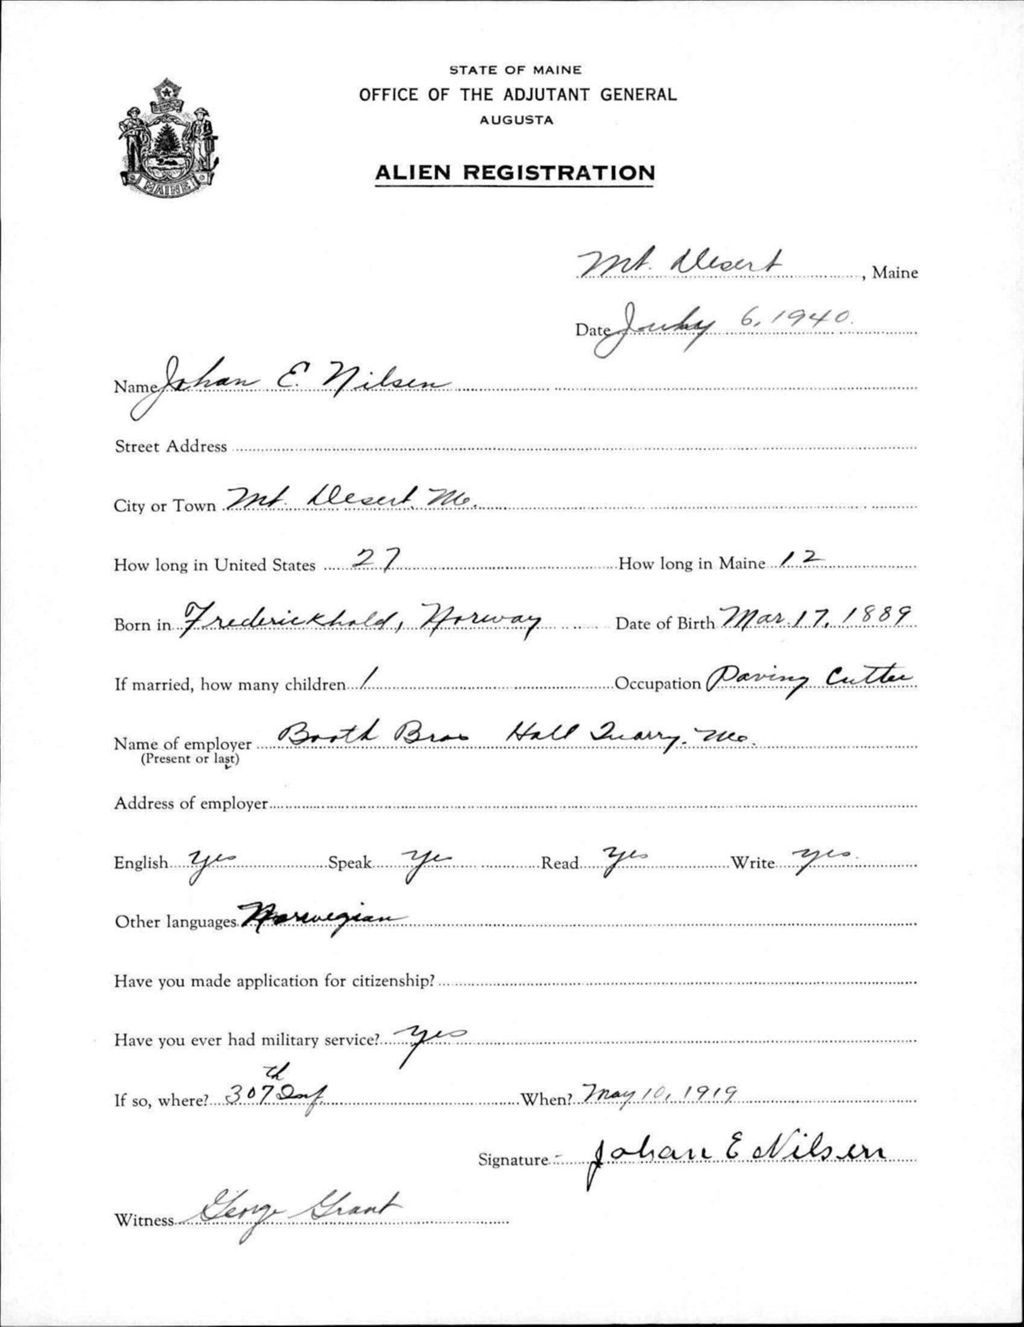 STATE OF MAINE
OFFICE OF THE ADJUTANT GENERAL
AUGUSTA
ALIEN REGISTRATION
MAINE
Mt. Desert, Maine
Date July 6, 1940.
Name Johan E. Nilsen
Street Address
City or Town Mt. Desert, Me.
How long in United States 27 How long in Maine 12
Born in Frederickhald, Norway Date of Birth Mar. 17, 1889
If married, how many children 1 Occupation Paving Cutter
Name of employer Booth Bros Hall Quarry, Me.
(Present or last)
Address of employer
English yes Speak yes Read yes Write yes.
Other languages Norwegian
Have you made application for citizenship?
Have you ever had military service? yes
If so, where? 307th Inf. When? May 10, 1919
Signature Johan E Nilsen
Witness George Grant